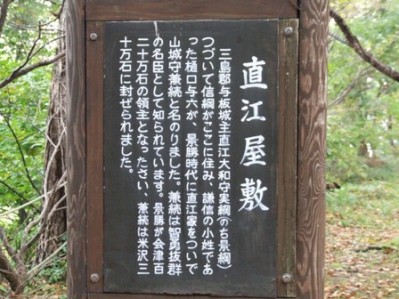 直江屋敷
三島郡与板城主直江大和守実綱(のち景綱)
つづいて信綱がここに住み、謙信の小姓であ
った樋口与六が、景勝時代に直江家をついで
山城守兼続と名のりました。兼続は智勇抜群
の名臣として知られています。景勝が会津百
二十万石の領主となったさい、兼続は米沢三
十万石に封ぜられました。